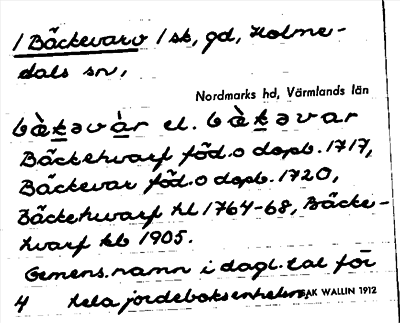 1 Bäckevarv 1 sk, gd, Holme-
dals sn,
Nordmarks hd, Värmlands län
bὲkəvàr el. bὲkəvar
Bäckehvarf föd.o dopb. 1717,
Bäckevar föd.o dopb. 1720,
Bäckehuvarf hl 1764-68, Bäcke-
hvarf kb 1905.
Gemens. namn i dagl. tal för
4 hela jordeboksenheten, AK WALLIN 1912